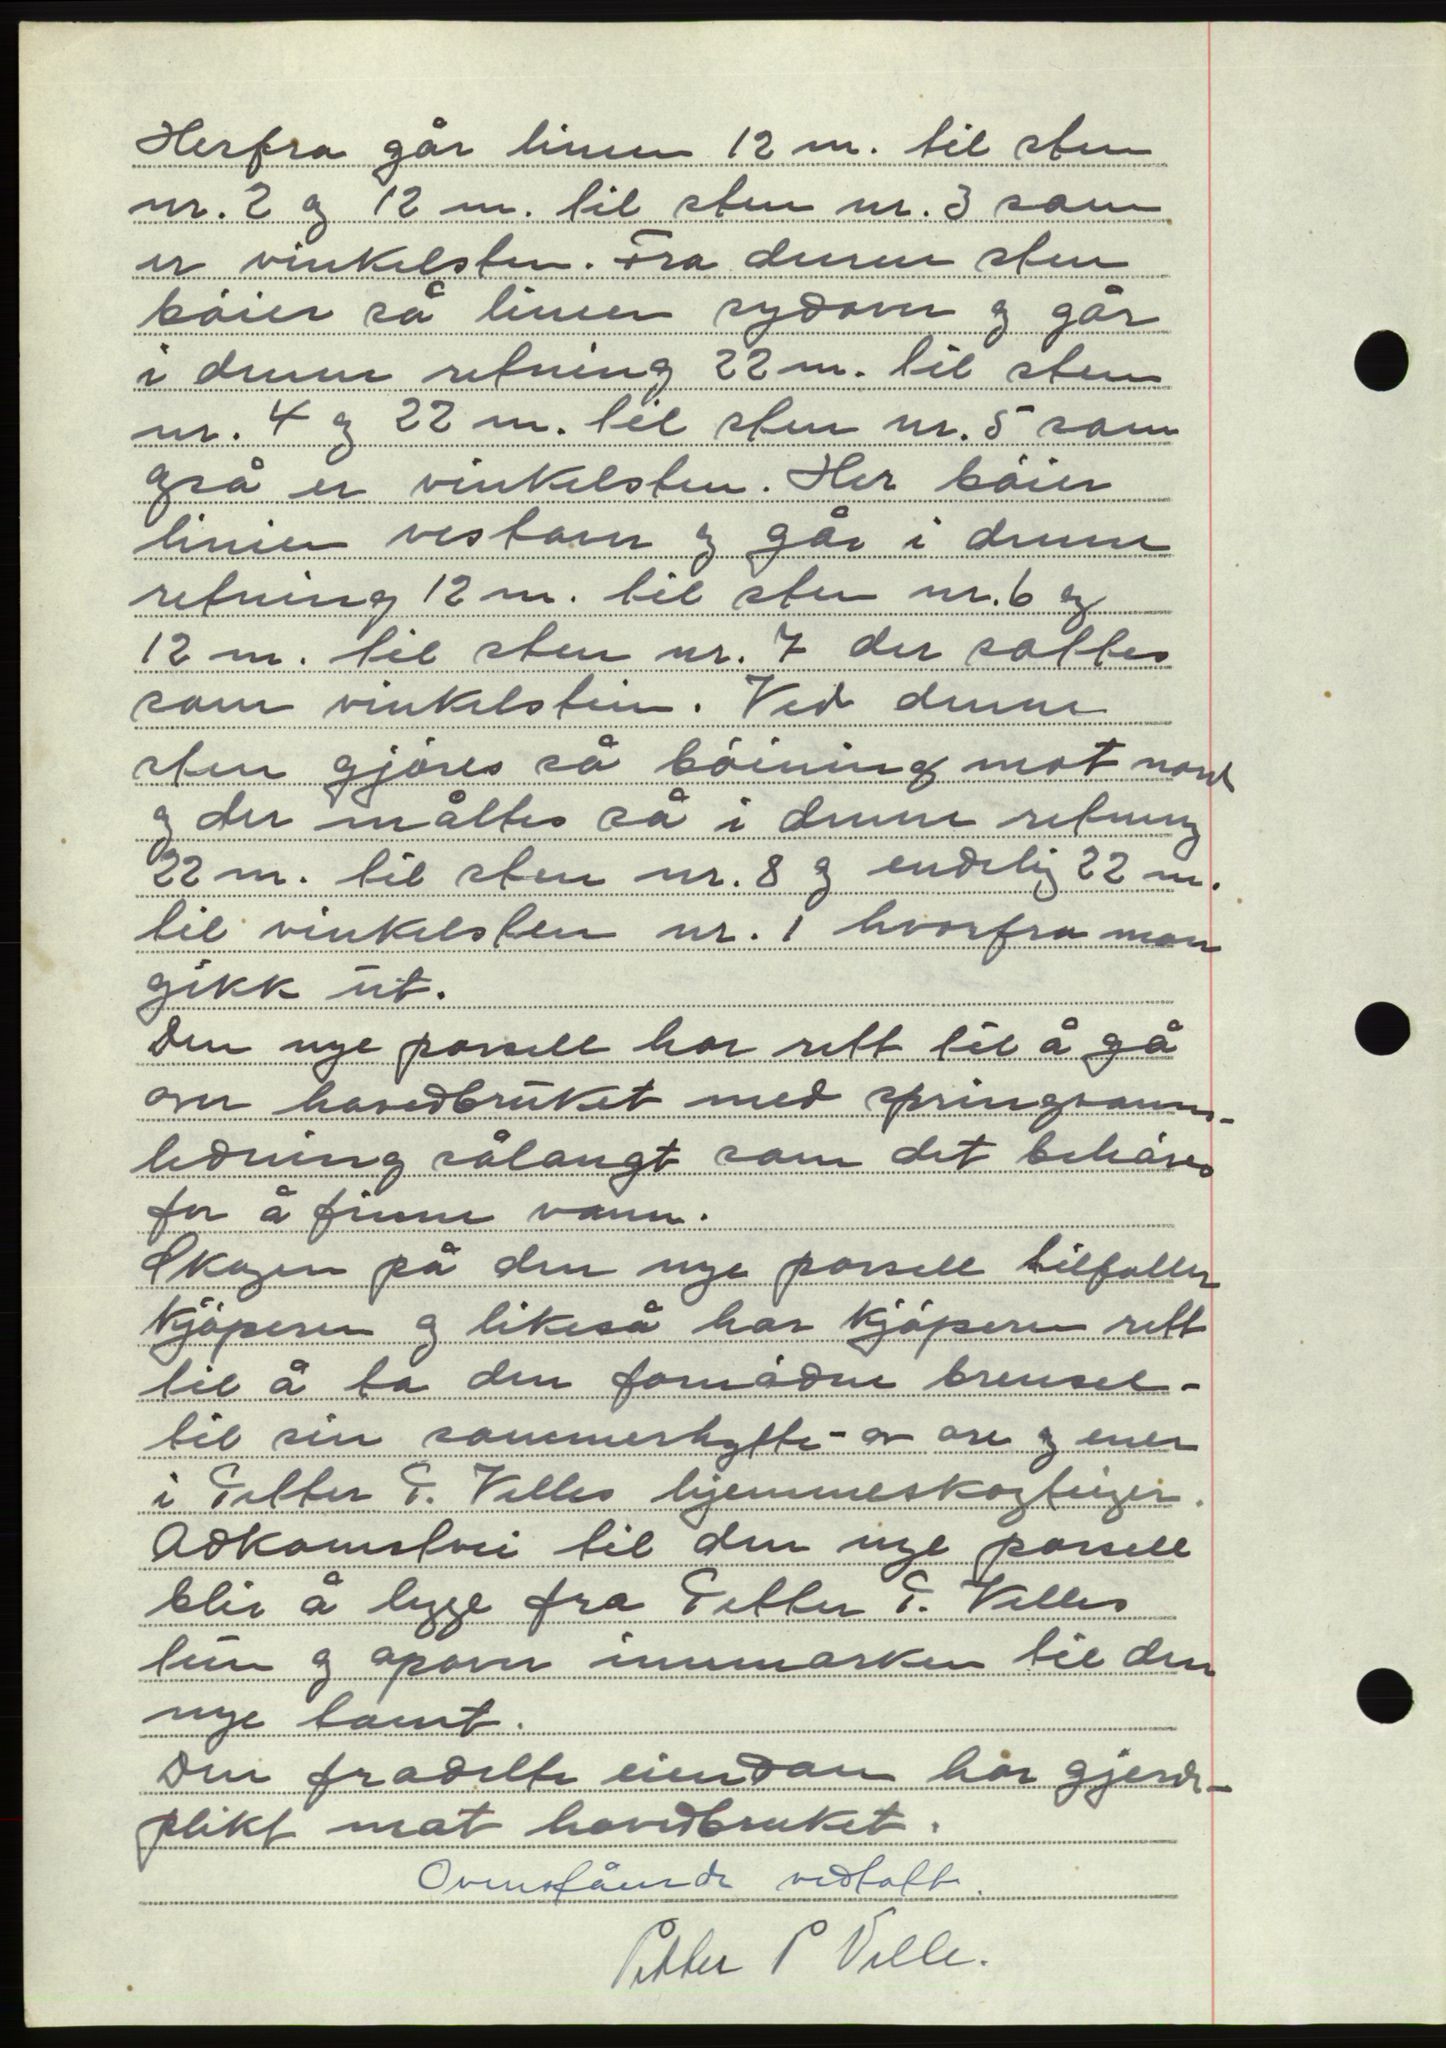 Herfra går linien 12 m. til sten
nr. 2 og 12 m. til sten nr. 3 som
er vinkelsten. Fra denne sten
bóier så linien sydover og går
i denne retning 22 m. til sten
nr. 4 og 22 m. til sten nr. 5 som
også er vinkelsten. Her bóier
linien vestover og går i denne
retning 12 m. til sten nr. 6 og
12 m. til sten nr. 7 der sattes
som vinkelstein. Ved denne
sten gjóres så bóining mot nord
og der måltes så i denne retning
22 m. til sten nr. 8 og endelig 22 m.
til vinkelsten nr. 1 hvorfra man
gikk ut.
Den nye parsell har rett til å gå
over hovedbruket med springvanns-
ledning sålangt som det behóves
for å finne vann.
Skogen på den nye parsell tilfaller
kjóperen og likeså har kjóperen rett
til å ta den fornódne brensel-
til sin sommerhytte- av ore og ener
i Petter P. Velles hjemmeskogteiger.
Adkomstvei til den nye parsell
blir å legge fra Petter P. Velles
tun og opover innmarken til den
nye tomt.
Den fradelte eiendom har gjerde-
plikt mot hovedbruket.
Ovenstående vedtatt.
Petter P Velle.